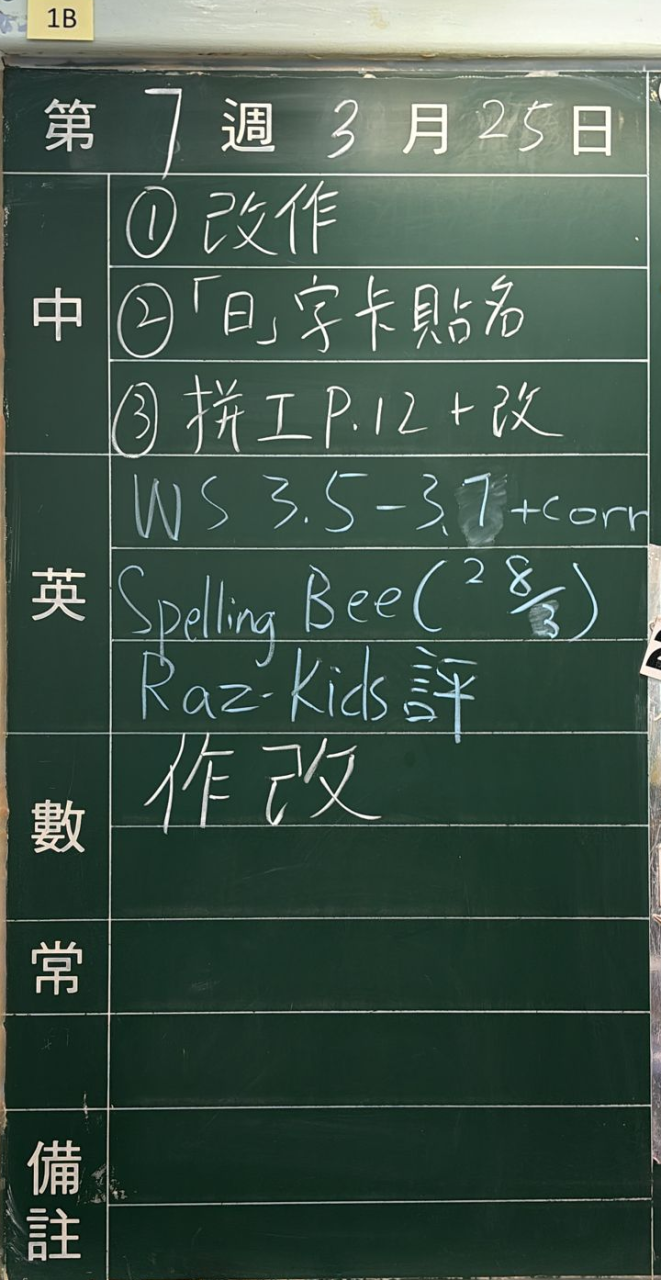 1B
第 7 週 3 月 25 日
中
① 改作
② 「日」字卡貼名
③ 拼工 P.12 + 改
英
WS 3.5-3.7 + corr
Spelling Bee (28/3)
Raz-Kids 評
數
作改
常
備註